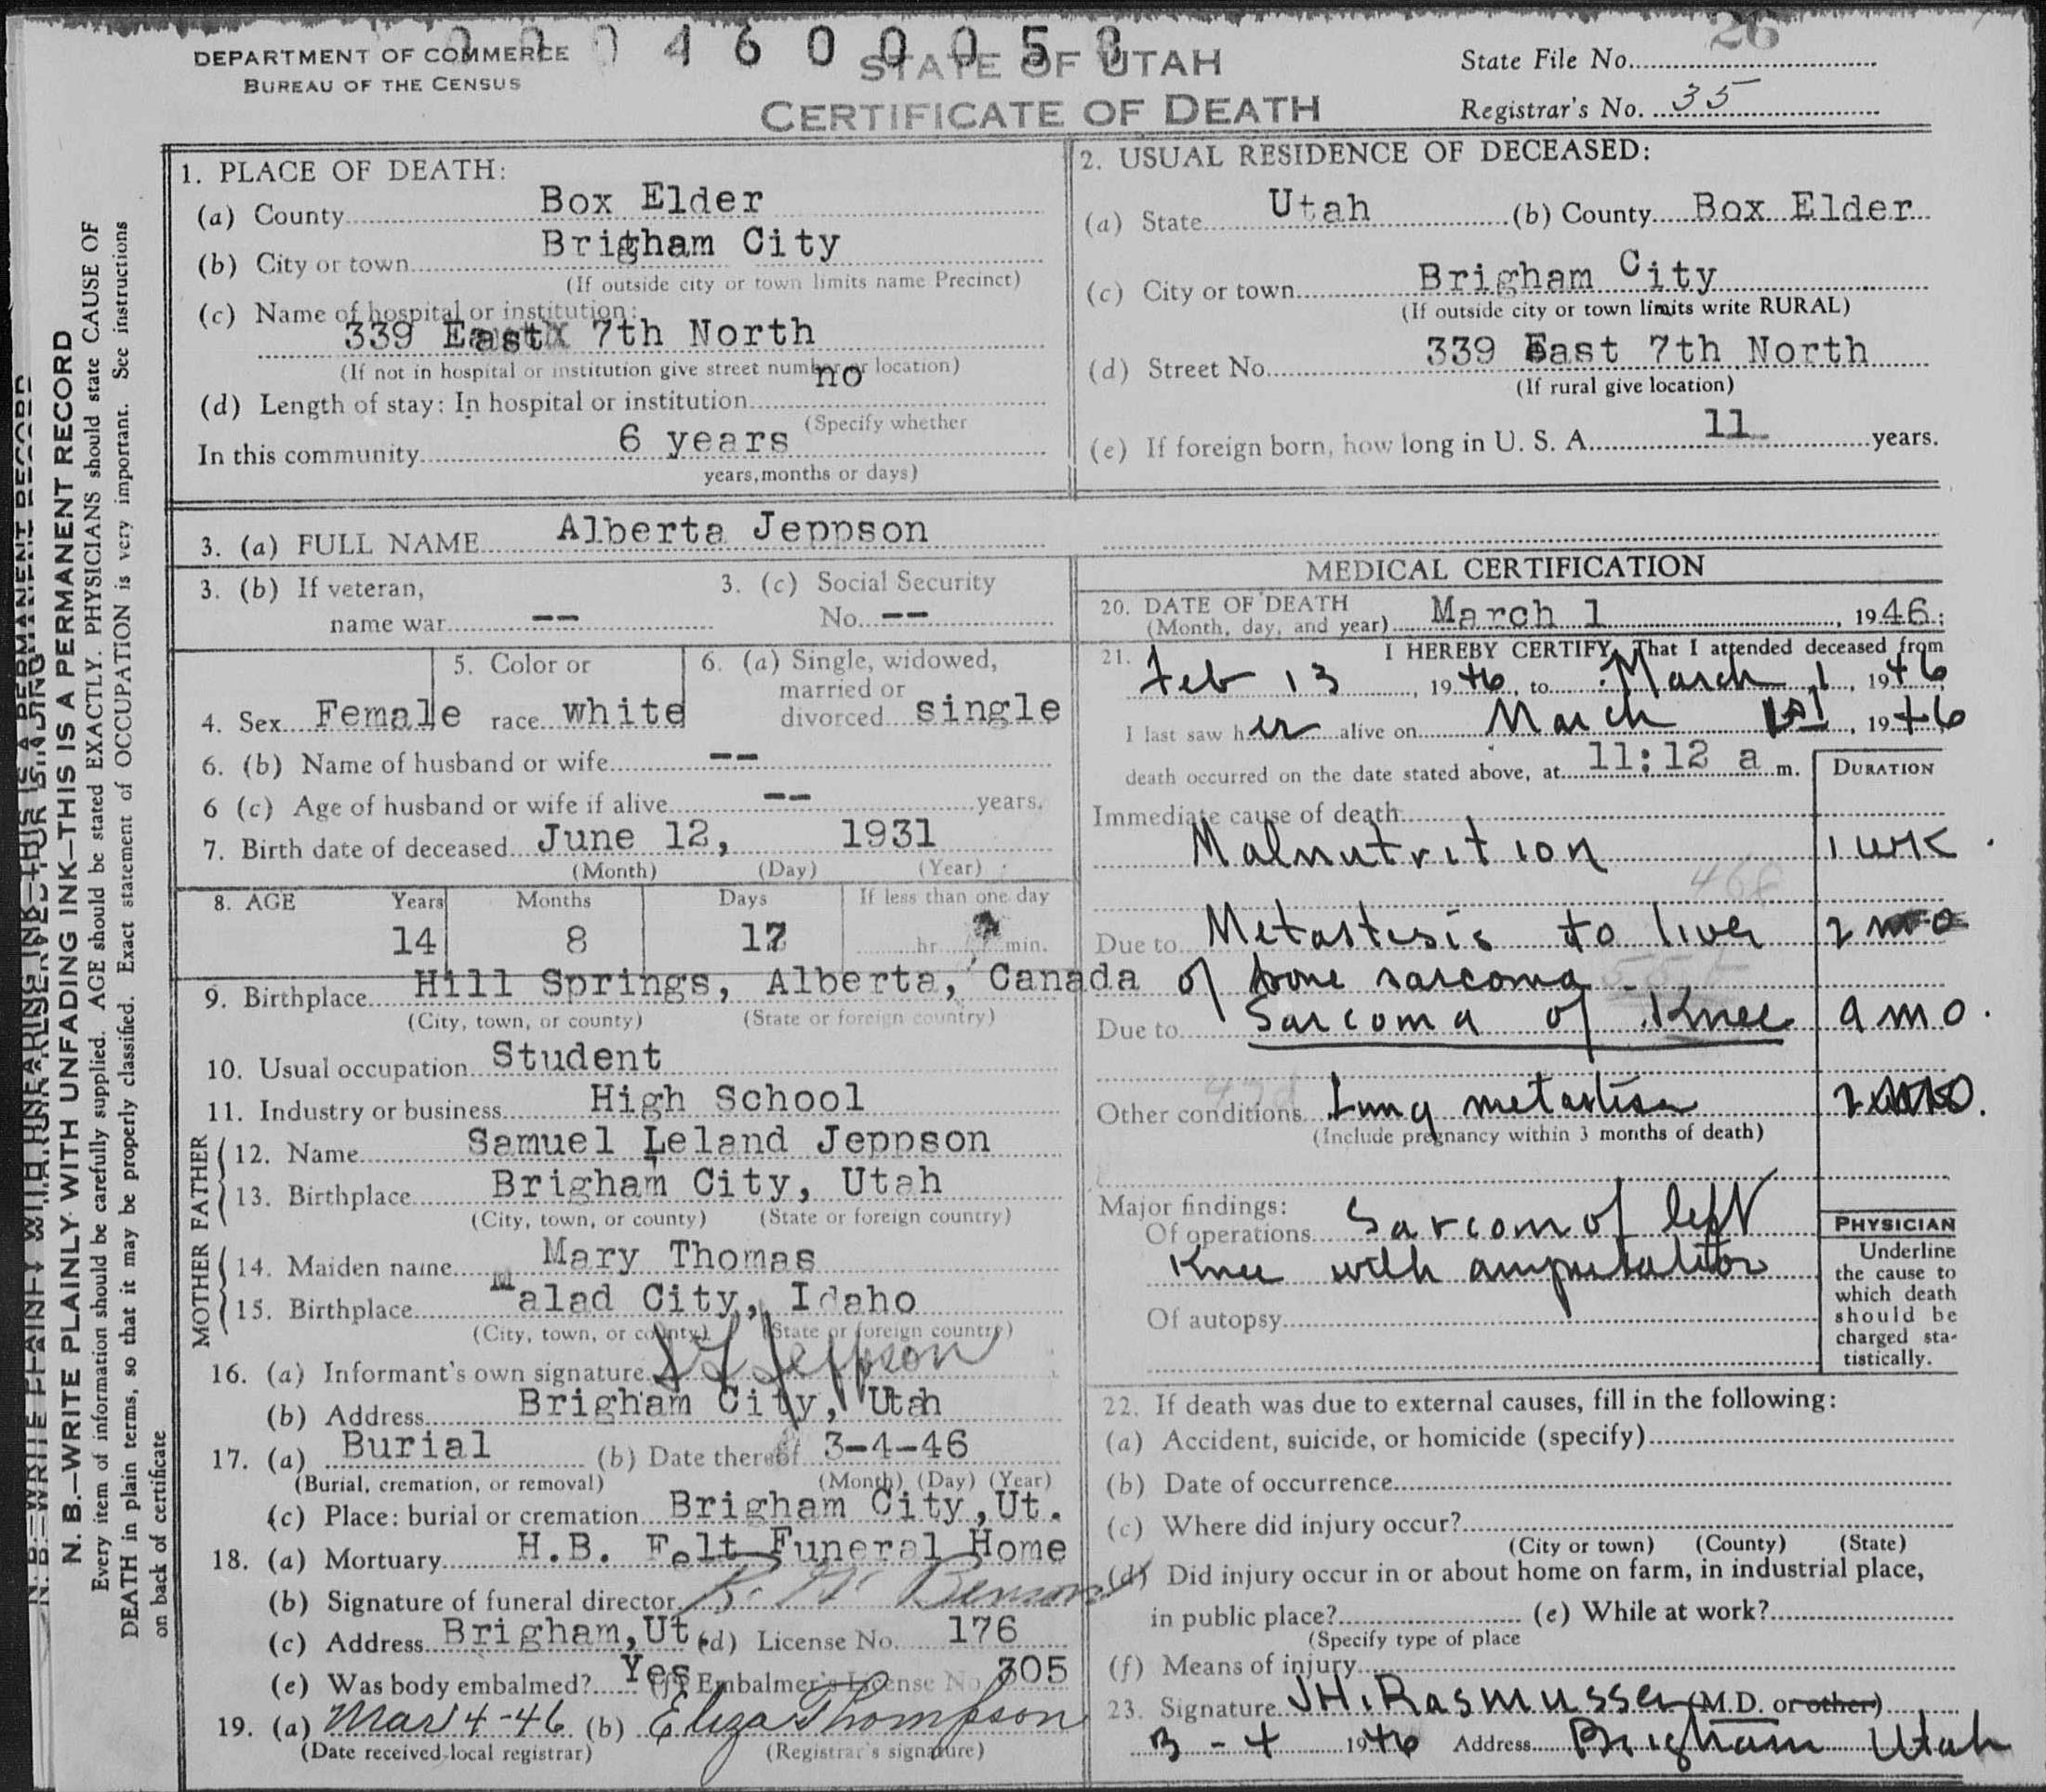 DEPARTMENT OF COMMERCE
BUREAU OF THE CENSUS
004600058
STATE OF UTAH
CERTIFICATE OF DEATH
26
State File No.
Registrar's No. 35
N. B.—WRITE PLAINLY WITH UNFADING INK—THIS IS A PERMANENT RECORD
Every item of information should be carefully supplied. AGE should be stated EXACTLY. PHYSICIANS should state CAUSE OF
DEATH in plain terms, so that it may be properly classified. Exact statement of OCCUPATION is very important. See instructions
on back of certificate
1. PLACE OF DEATH:
(a) County Box Elder
(b) City or town Brigham City
(If outside city or town limits name Precinct)
(c) Name of hospital or institution:
339 East 7th North
(If not in hospital or institution give street number or location)
(d) Length of stay: In hospital or institution no
(Specify whether
In this community 6 years
years, months or days)
2. USUAL RESIDENCE OF DECEASED:
(a) State Utah (b) County Box Elder
(c) City or town Brigham City
(If outside city or town limits write RURAL)
(d) Street No. 339 East 7th North
(If rural give location)
(e) If foreign born, how long in U. S. A. 11 years.
3. (a) FULL NAME Alberta Jeppson
3. (b) If veteran,
name war --
3. (c) Social Security
No. --
4. Sex Female
5. Color or
race white
6. (a) Single, widowed,
married or
divorced single
6. (b) Name of husband or wife --
6 (c) Age of husband or wife if alive -- years.
7. Birth date of deceased June 12, 1931
(Month) (Day) (Year)
8. AGE Years Months Days If less than one day
14 8 17 hr. min.
9. Birthplace Hill Springs, Alberta, Canada
(City, town, or county) (State or foreign country)
10. Usual occupation Student
11. Industry or business High School
FATHER
12. Name Samuel Leland Jeppson
13. Birthplace Brigham City, Utah
(City, town, or county) (State or foreign country)
MOTHER
14. Maiden name Mary Thomas
15. Birthplace Malad City, Idaho
(City, town, or county) (State or foreign country)
16. (a) Informant's own signature S L Jeppson
(b) Address Brigham City, Utah
17. (a) Burial (b) Date thereof 3-4-46
(Burial, cremation, or removal) (Month) (Day) (Year)
(c) Place: burial or cremation Brigham City, Ut.
18. (a) Mortuary H.B. Felt Funeral Home
(b) Signature of funeral director Benson
(c) Address Brigham, Ut. (d) License No. 176
(e) Was body embalmed? Yes (f) Embalmer's License No. 305
19. (a) Mar 4-46 (b) Eliza Thompson
(Date received local registrar) (Registrar's signature)
MEDICAL CERTIFICATION
20. DATE OF DEATH
(Month, day, and year) March 1, 1946;
21. I HEREBY CERTIFY, That I attended deceased from
Feb 13, 1946, to March 1, 1946
I last saw her alive on March 1st, 1946
death occurred on the date stated above, at 11:12 a m.
DURATION
Immediate cause of death
Malnutrition 1 wk.
Due to Metastesis to liver 2 mo
of bone sarcoma
Due to Sarcoma of Knee 9 mo.
Other conditions Lung metastisis
(Include pregnancy within 3 months of death)
Major findings:
Of operations Sarcom of left
Knee with amputation
Of autopsy
PHYSICIAN
Underline
the cause to
which death
should be
charged sta-
tistically.
22. If death was due to external causes, fill in the following:
(a) Accident, suicide, or homicide (specify)
(b) Date of occurrence
(c) Where did injury occur?
(City or town) (County) (State)
(d) Did injury occur in or about home on farm, in industrial place,
in public place? (e) While at work?
(Specify type of place
(f) Means of injury
23. Signature J H. Rasmussen (M.D. or other)
3-4 1946 Address Brigham Utah